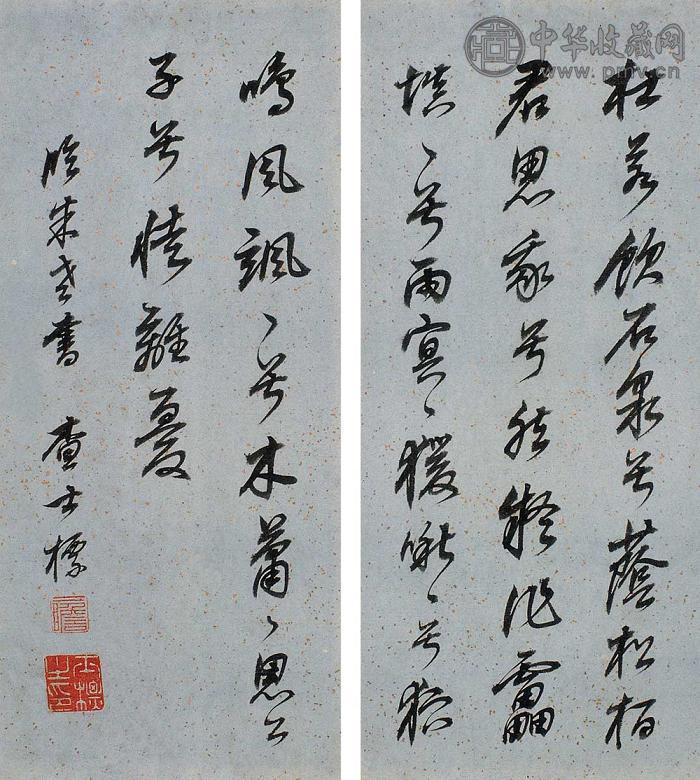 中华收藏网
www.pmv.cn
杜若飲石泉兮蔭松柏
君思我兮然疑作靁
填〻兮雨冥〻猨啾〻兮狖
鳴風颯〻兮木蕭〻思公
子兮徒離憂
臨米老書 查士標